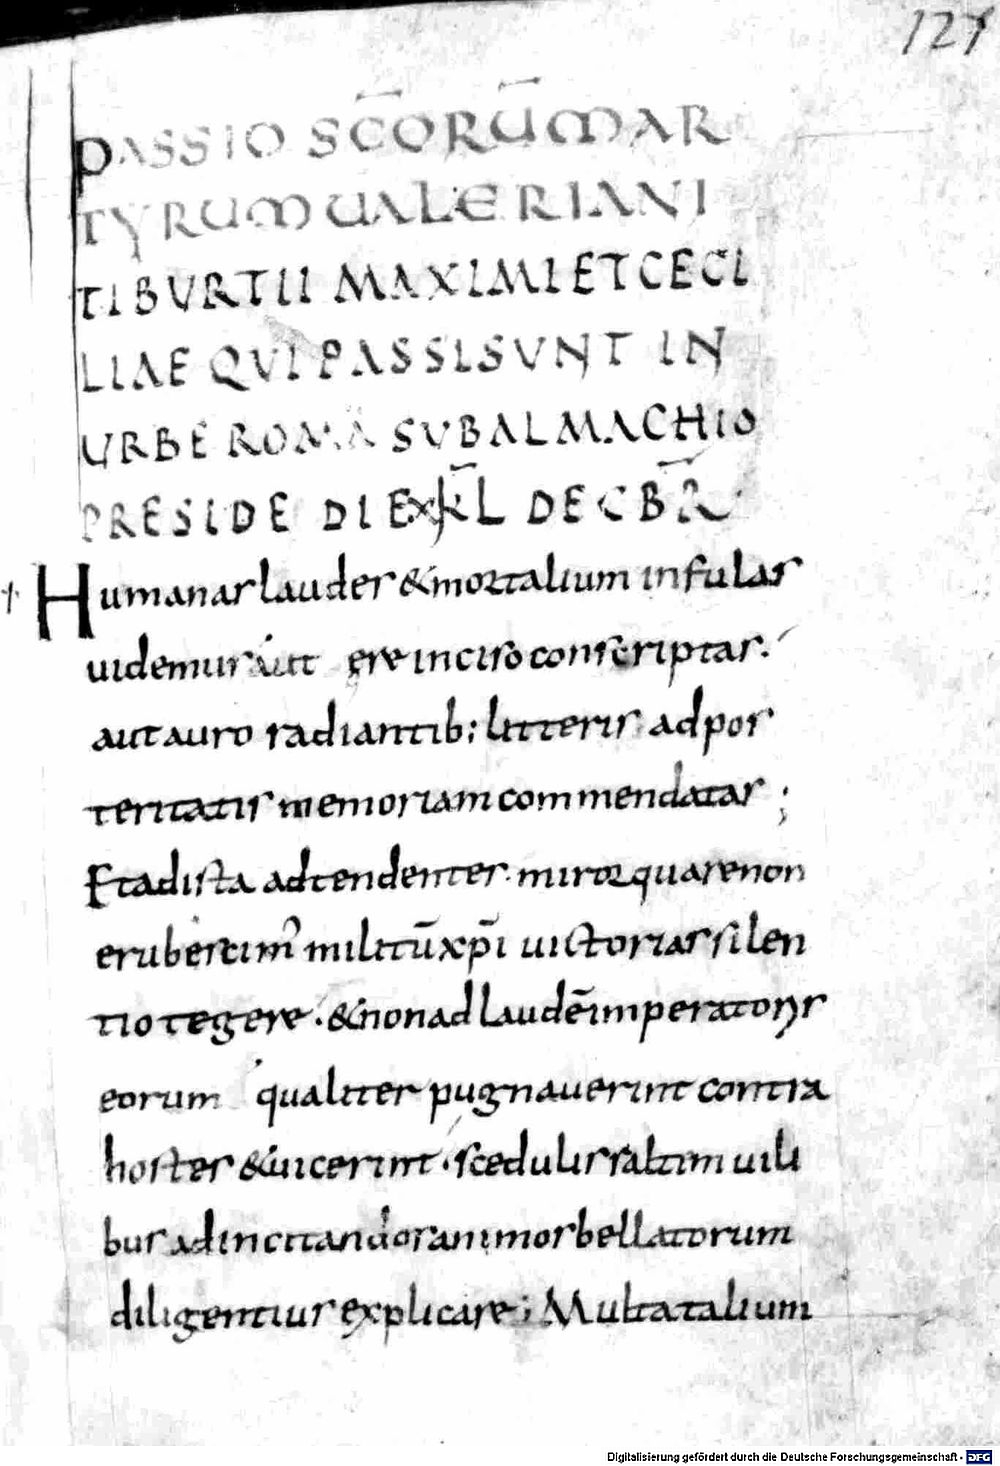 127
PASSIO SC̄ORŪM MAR
TYRUM UALERIANI
TIBURTII MAXIMI ET CECI
LIAE QVI PASSI SVNT IN
URBE ROMA SVB ALMACHIO
PRESIDE DIE X K̄L DECB̄R
† Humanas laudes & mortalium infulas
uidemus aut ere inciso conscriptas.
aut auro radiantib; litteris ad pos
teritatis memoriam commendatas;
Et ad ista adtendentes. miror quare non
erubescim' militū xp̄i uictorias silen
tio tegere. & non ad laudē imperatoris
eorum qualiter pugnauerint contra
hostes & uicerint. scedulis saltim uili
bus ad incitandos animos bellatorum
diligentius explicare; Multa talium
Digitalisierung gefördert durch die Deutsche Forschungsgemeinschaft - DFG